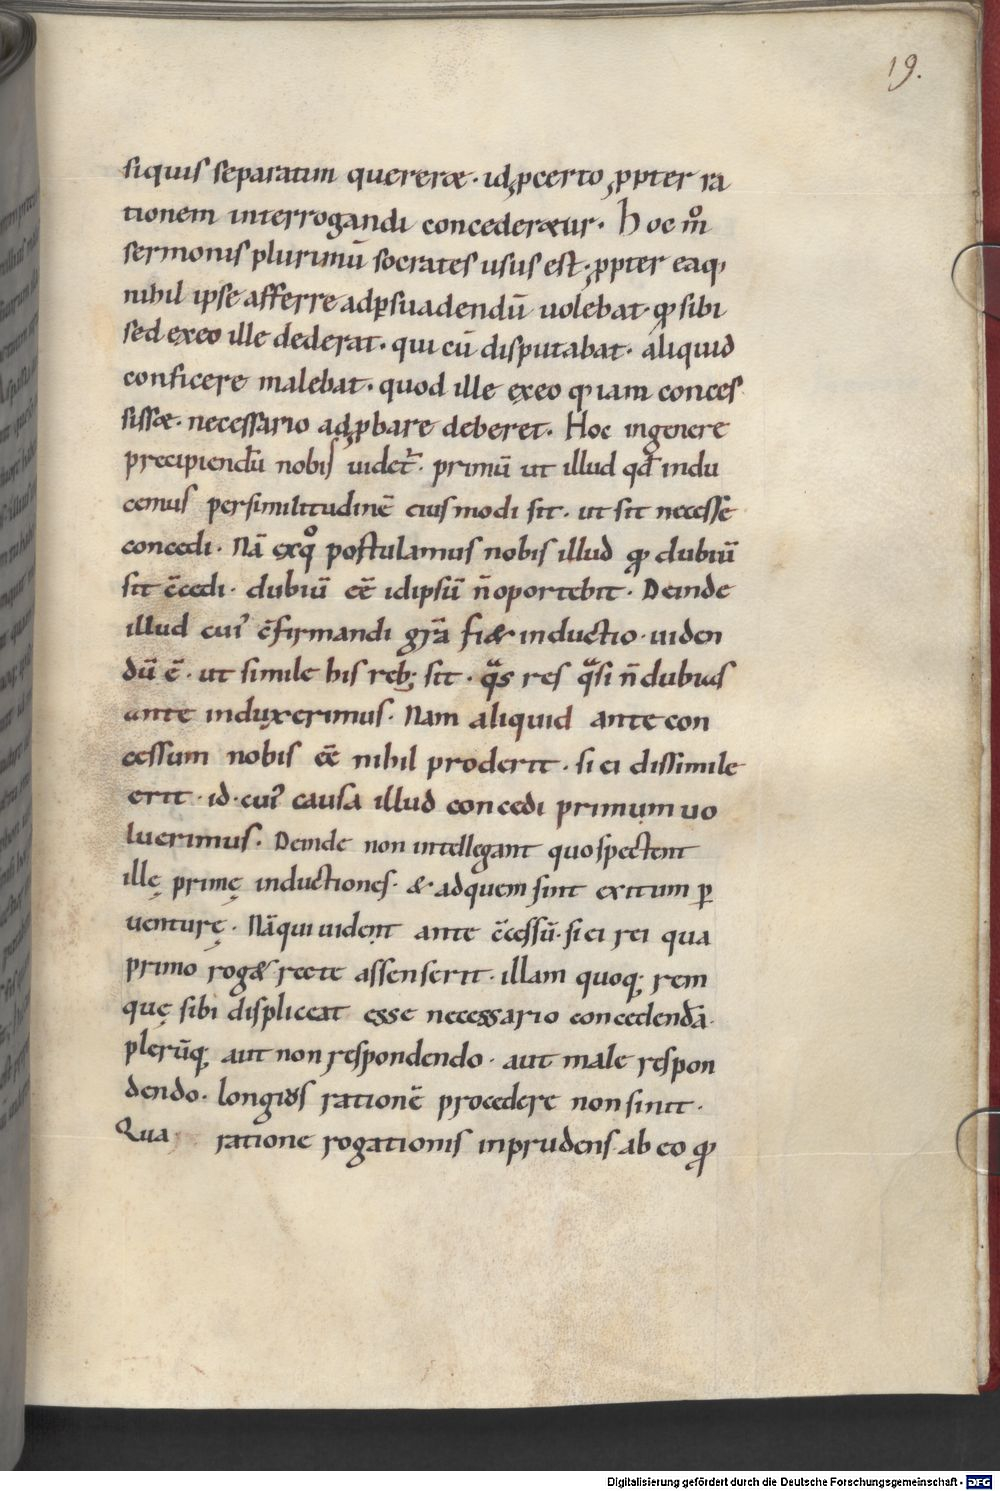 19.
siquis separatim quereret. id ꝓcerto ꝓpter ra
tionem interrogandi concederetur. Hoc m̊
sermonis plurimū socrates usus est. ꝓpter eaq,
nihil ipse afferre adꝑsuadendū uolebat. qđ sibi
sed exeo ille dederat. qui cū disputabat. aliquid
conficere malebat. quod ille exeo qđ iam conces
sisset. necessario adꝓbare deberet. Hoc ingenere
precipiendū nobis uidet᷑. primū ut illud qđ indu
cemus persimilitudinē eiusmodi sit. ut sit necesse
concedi. Nā exq̊ postulamus nobis illud qđ dubiū
sit c̄cedi. dubiū eē idipsū n̄oportebit. Deinde
illud cui᾽ c̄firmandi gr̄a fiet inductio. uiden
dū ē. ut simile his reb; sit. qͣs res qͣsi n̄dubias
ante induxerimus. Nam aliquid ante con
cessum nobis eē nihil proderit. si ei dissimile
erit. id. cui᾽ causa illud concedi primum uo
luerimus. Deinde non intellegant quo spectent
illę primę inductiones. & adquem sint exitum ꝑ
uenturę. Nāqui uident ante c̄cessū. si ei rei qua
primo roget recte assenserit. illam quoq; rem
quę sibi displiceat esse necessario concedendā.
plerūq; aut non respondendo. aut male respon
dendo. longi᷒s rationē procedere non sinit.
Qua ratione rogationis inprudens ab eo qđ
Digitalisierung gefördert durch die Deutsche Forschungsgemeinschaft - DFG